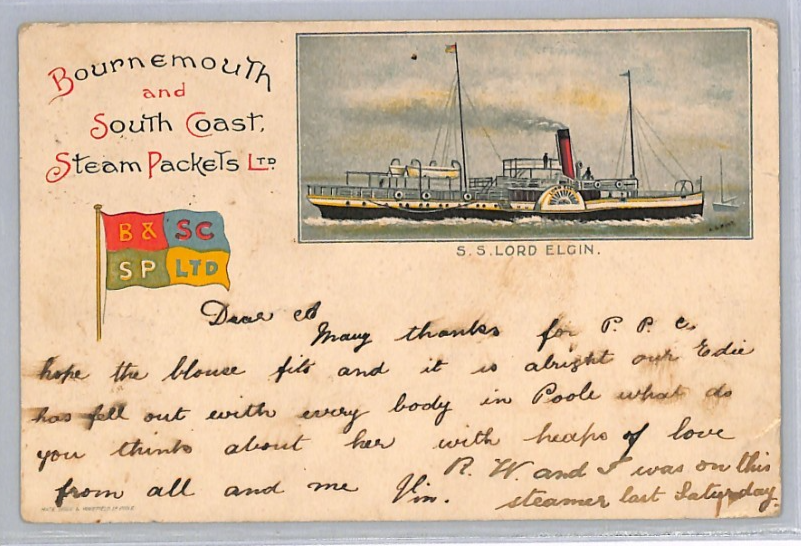 Bournemouth
and
South Coast,
Steam Packets LTD.
B & SC
SP LTD
S.S. LORD ELGIN.
Dear
Many thanks for P. P. C.
hope the blouse fits and it is alright our Edie
has fell out with every body in Poole what do
you think about her with heaps of love
from all and me Vin.
R. W. and I was on this
steamer last Saturday.